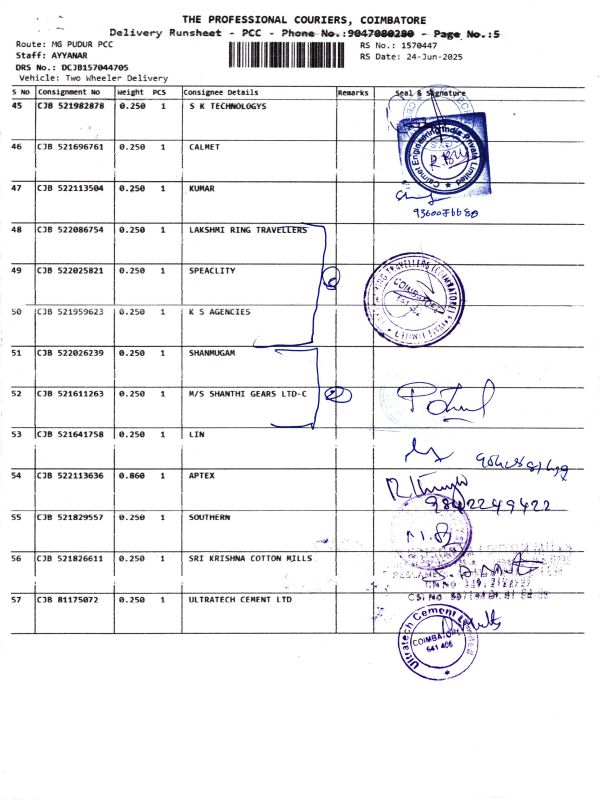 THE PROFESSIONAL COURIERS, COIMBATORE
Delivery Runsheet - PCC - Phone No.:9047080280 - Page No.:5
Route: MG PUDUR PCC
RS No.: 1570447
Staff: AYYANAR
RS Date: 24-Jun-2025
DRS No.: DCJB157044705
Vehicle: Two Wheeler Delivery
S No Consignment No Weight PCS Consignee Details Remarks Seal & Signature
45 CJB 521982878 0.250 1 S K TECHNOLOGYS
46 CJB 521696761 0.250 1 CALMET
Calmet Engineering India Private Limited
47 CJB 522113504 0.250 1 KUMAR
48 CJB 522086754 0.250 1 LAKSHMI RING TRAVELLERS
49 CJB 522025821 0.250 1 SPEACLITY
RING TRAVELLERS (COIMBATORE) PRIVATE LIMITED
COIMBATORE
50 CJB 521959623 0.250 1 K S AGENCIES
51 CJB 522026239 0.250 1 SHANMUGAM
52 CJB 521611263 0.250 1 M/S SHANTHI GEARS LTD-C
53 CJB 521641758 0.250 1 LIN
54 CJB 522113636 0.860 1 APTEX
9842249422
55 CJB 521829557 0.250 1 SOUTHERN
56 CJB 521826611 0.250 1 SRI KRISHNA COTTON MILLS
57 CJB 81175072 0.250 1 ULTRATECH CEMENT LTD
Ultratech Cement Limited
COIMBATORE
641 406